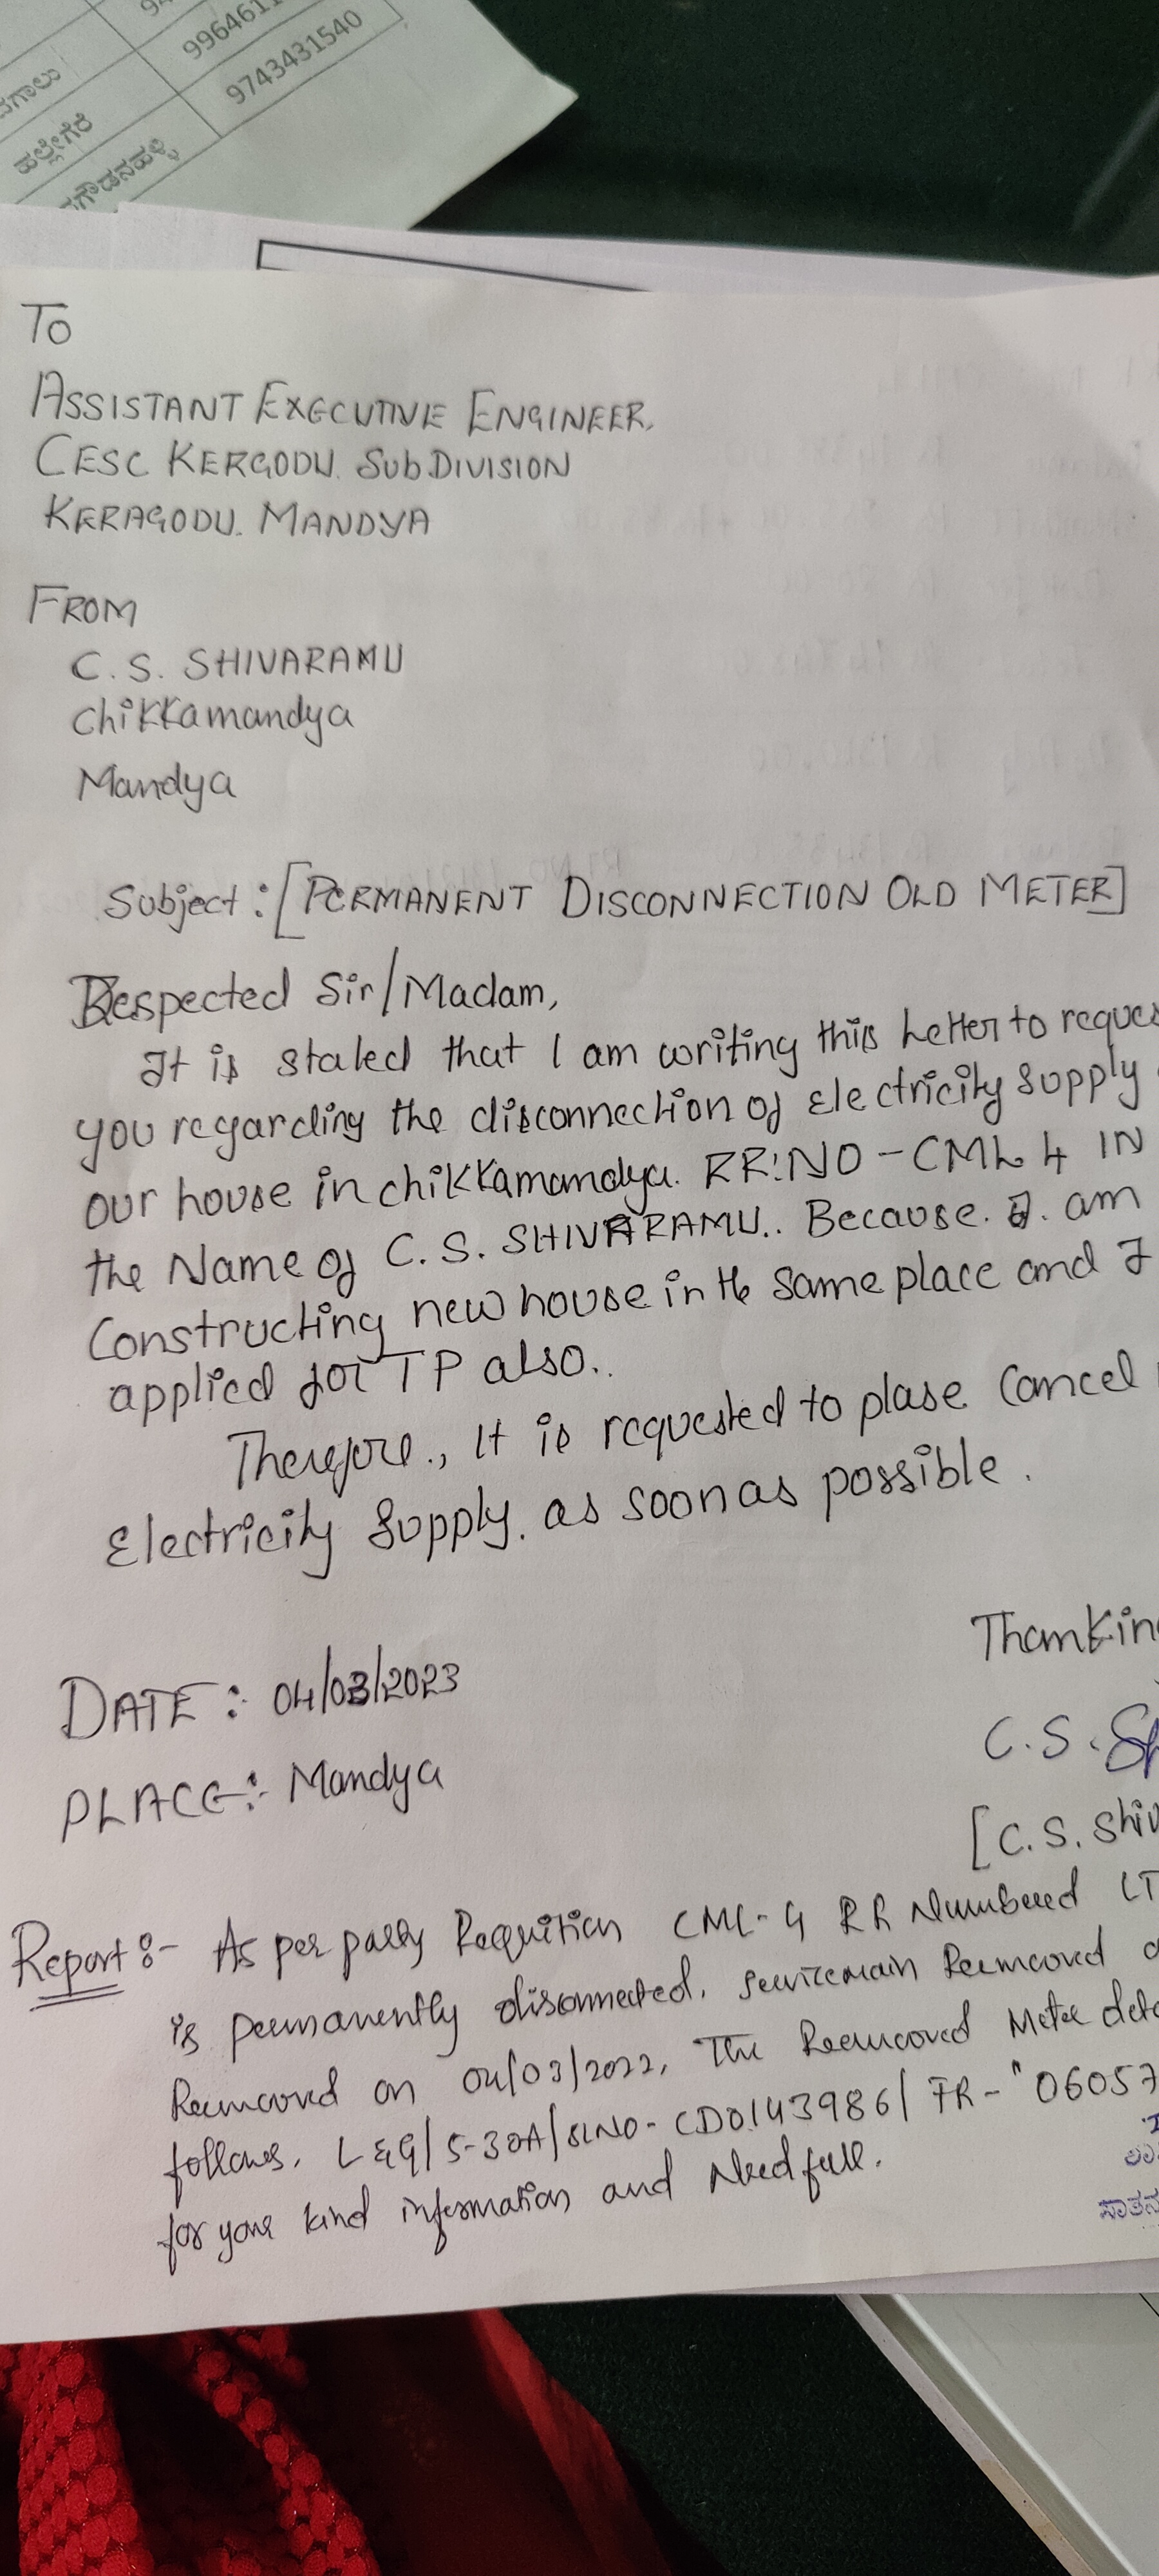 9964611
9743431540
ಹಲ್ಲೇಗೆರೆ
To
ASSISTANT EXECUTIVE ENGINEER,
CESC KERGODU. SubDIVISION
KERAGODU. MANDYA
FROM
C. S. SHIVARAMU
Chikkamandya
Mandya
Subject : [PERMANENT DISCONNECTION OLD METER]
Respected Sir/Madam,
It is stated that I am writing this Letter to reques
you regarding the disconnection of Electricity Supply
our house in chikkamandya. RR:NO - CML 4 IN
the Name of C. S. SHIVARAMU.. Because. I. am
Constructing new house in the same place and I
applied for TP also..
Therefore., It is requested to plase Cancel
Electricity Supply. as soon as possible.
Thankin
DATE :- 04/03/2023
C.S. Sh
PLACE :- Mandya
[C.S. Shiv
Report :- As per party Requition CML-4 RR Numbered LT
is permanently disconnected. servicemain Reemcoved
Reemcoved on 04/03/2022, The Reemcoved Meter deta
follows. L&G/5-30A/SLNO-CD0143986/FR-"06057
for your kind information and Needfull.